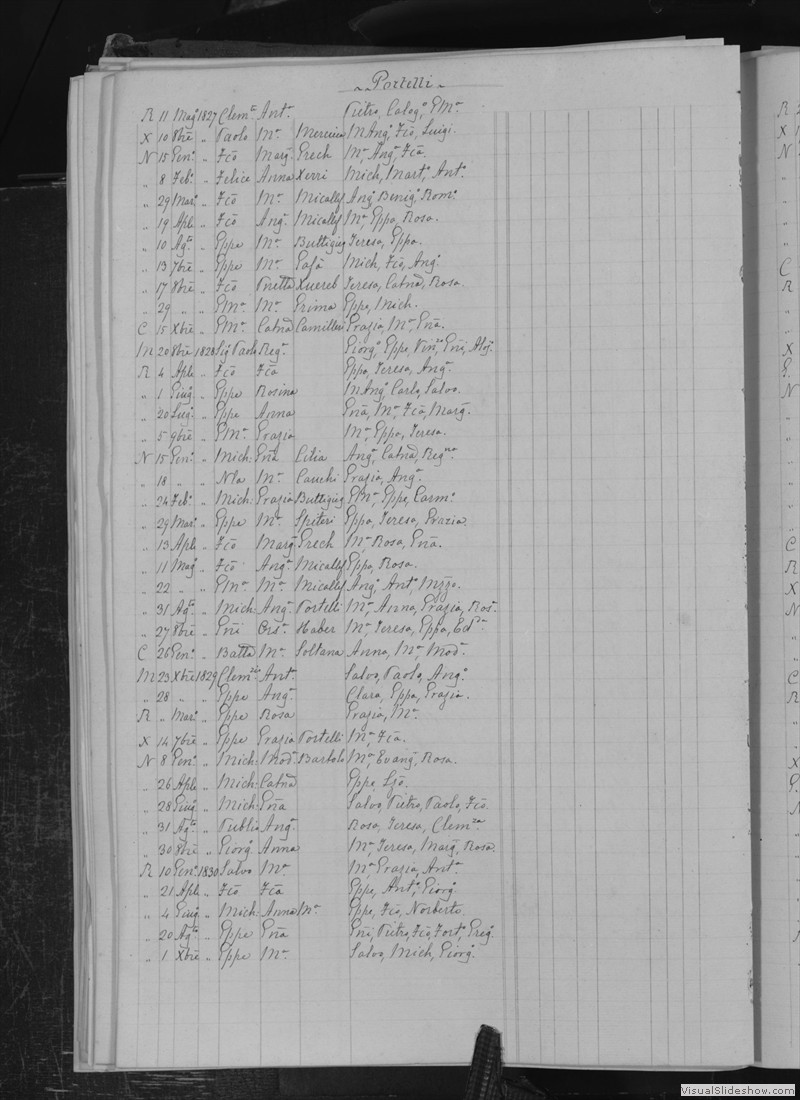 Portelli
R 11 Mag: 1827 Clemte Anta Pietro, Calogo, EMa
X 10 8bre " Paolo Ma Mercieca MAnga, Fco, Luigi.
N 15 Geno " Fco Marga Grech Ma, Anga, Fca.
" 8 Febo " Felice Anna Xerri Mich, Marto, Anto
" 29 Maro " Fco Ma Micallef Ango, Benigo, Romo
" 19 Aple " Fco Anga Micallef Ma, Gppa, Rosa.
" 10 Agto " Gppe Ma Buttigieg Teresa, Gppa.
" 13 7bre " Gppe Ma Mich, Fco, Ango
" 17 8bre " Fco Xuereb Teresa, Catna, Rosa.
" 29 " " EMa Ma Grima Gppe, Mich.
C 15 Xbre " EMe Catna Camilleri Grazia, Ma, Gna.
M 20 8bre 1828 Sig Paolo Rega Giorgo, Gppe, Vinzo, Gni, Aloo
R 4 Aple " Fco Fca Gppa, Teresa, Anga
" 1 Giug " Gppe Rosina MAnga, Carlo, Salvo.
" 20 Lugo " Gppe Anna Gna, Ma, Fca, Marga
" 5 9bre " EMe Grazia Ma, Gppe, Teresa.
N 15 Geno " Mich: Gna Anga, Catna, Regna
" 18 " " Nla Ma Cauchi Grazia, Anga
" 24 Febo " Mich: Grazia Buttigieg EMe, Gppe, Carmo
" 29 Maro " Gppe Ma Spiteri Gppa, Teresa, Grazia.
" 13 Aple " Fco Marga Grech Ma Rosa, Gna.
" 11 Mago " Fco Anga Micallef Gppa, Rosa.
" 22 " " EMe Ma Micallef Anga, Anto, Mzza.
" 31 Agto " Mich: Anga Portelli Ma, Anna, Grazia, Rosa
" 27 8bre " Gni Orsa Haber Ma, Teresa, Gppa,
C 26 Geno " Batta Ma Soltana Anna, Ma, Moda
M 23 Xbre 1829 Clemte Anta Salvo, Paolo, Ango
" 28 " " Gppe Anga Clara, Gppa, Grazia.
R " Maro " Gppe Rosa Grazia, Ma
X 14 7bre " Gppe Grazia Portelli Ma, Fca.
N 8 Geno " Mich: Moda Bartolo Ma, Evanga, Rosa.
" 26 Aple " Mich: Catna Gppe,
" 28 Giug " Mich: Gna Salvo, Pietro, Paolo, Fco.
" 31 Agto " Publio Anga Rosa, Teresa, Clemza
" 30 8bre " Giorgo Anna Ma, Teresa, Marga, Rosa.
R 10 Geno 1830 Salvo Ma Ma, Grazia, Anta
" 21 Aple " Fco Fca Gppe, Anto, Giorgo
" 4 Giug " Mich: Anna Ma Gppe, Fco, Norberto.
" 20 Agto " Gppe Gna Gni, Pietro, Fco, Forto, Grego
" 1 Xbre " Gppe Ma Salvo, Mich, Giorgo
VisualSlideshow.com